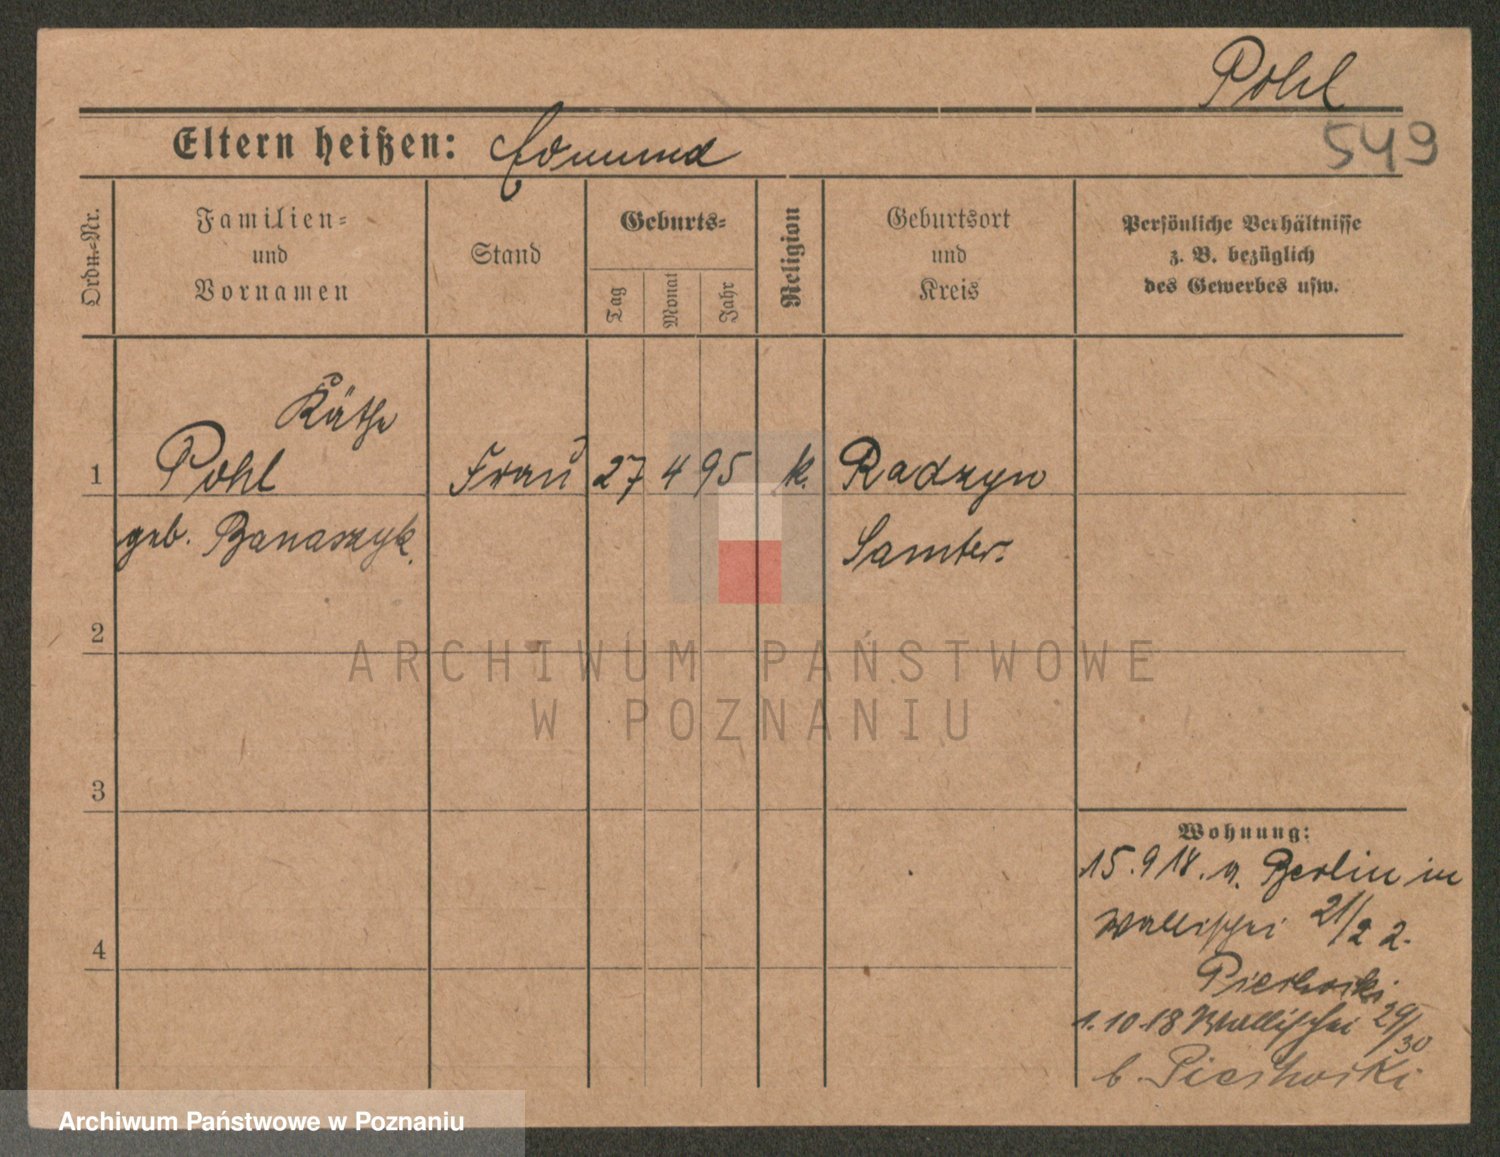 Pohl
Eltern heißen: Edmund
549
Ordn.-Nr.
Familien=
und
Vornamen
Stand
Geburts=
Tag
Monat
Jahr
Religion
Geburtsort
und
Kreis
Persönliche Verhältnisse
z. B. bezüglich
des Gewerbes usw.
Käthe
1 Pohl Frau 27 4 95 k. Radzyn
geb. Banaszyk. Samter.
2
ARCHIWUM PAŃSTWOWE
W POZNANIU
3
Wohnung:
15.9 18. a. Berlin in
Wallischei 21/22 2.
4
1.10.18 Wallischei 29/30
b.
Archiwum Państwowe w Poznaniu